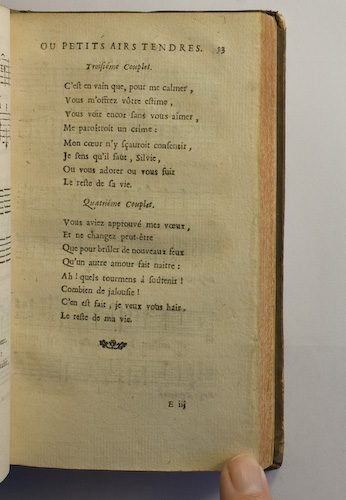 OU PETITS AIRS TENDRES. 53
Troisiéme Couplet.
C'est en vain que, pour me calmer,
Vous m'offrez vôtre estime,
Vous voir encor sans vous aimer,
Me paroîtroit un crime:
Mon cœur n'y sçauroit consentir,
Je sens qu'il faut, Silvie,
Ou vous adorer ou vous fuir
Le reste de sa vie.
Quatriéme Couplet.
Vous aviez approuvé mes vœux,
Et ne changez peut-être
Que pour brûler de nouveaux feux
Qu'un autre amour fait naître:
Ah! quels tourmens à soûtenir!
Combien de jalousie!
C'en est fait, je veux vous haïr,
Le reste de ma vie.
E iij